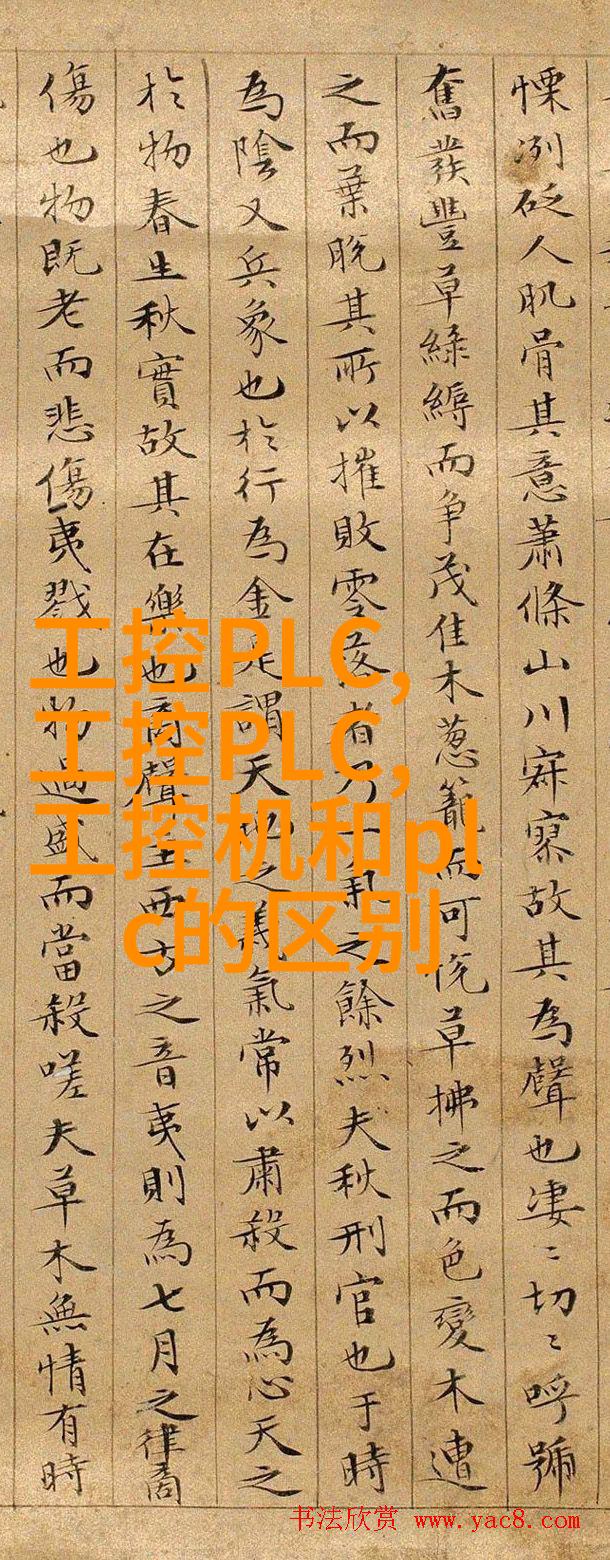 慄冽砭人肌骨其意蕭條山川寂寥故其為聲也淒〻切〻呼號
奮發豐草綠縟而争茂佳木葱籠而可悅草拂之而色變木遭
之而葉脫其所以摧敗零落者乃一氣之餘烈夫秋刑官也于時
為陰又兵象也於行為金是謂天地之義氣常以肅殺而為心天之
於物春生秋實故其在樂也商聲主西方之音夷則為七月之律商
傷也物既老而悲傷夷戮也物過盛而當殺嗟夫草木無情有時
工控PLC,
工控PLC,
工控机和pl
c的区别
书法欣赏 www.yac8.com